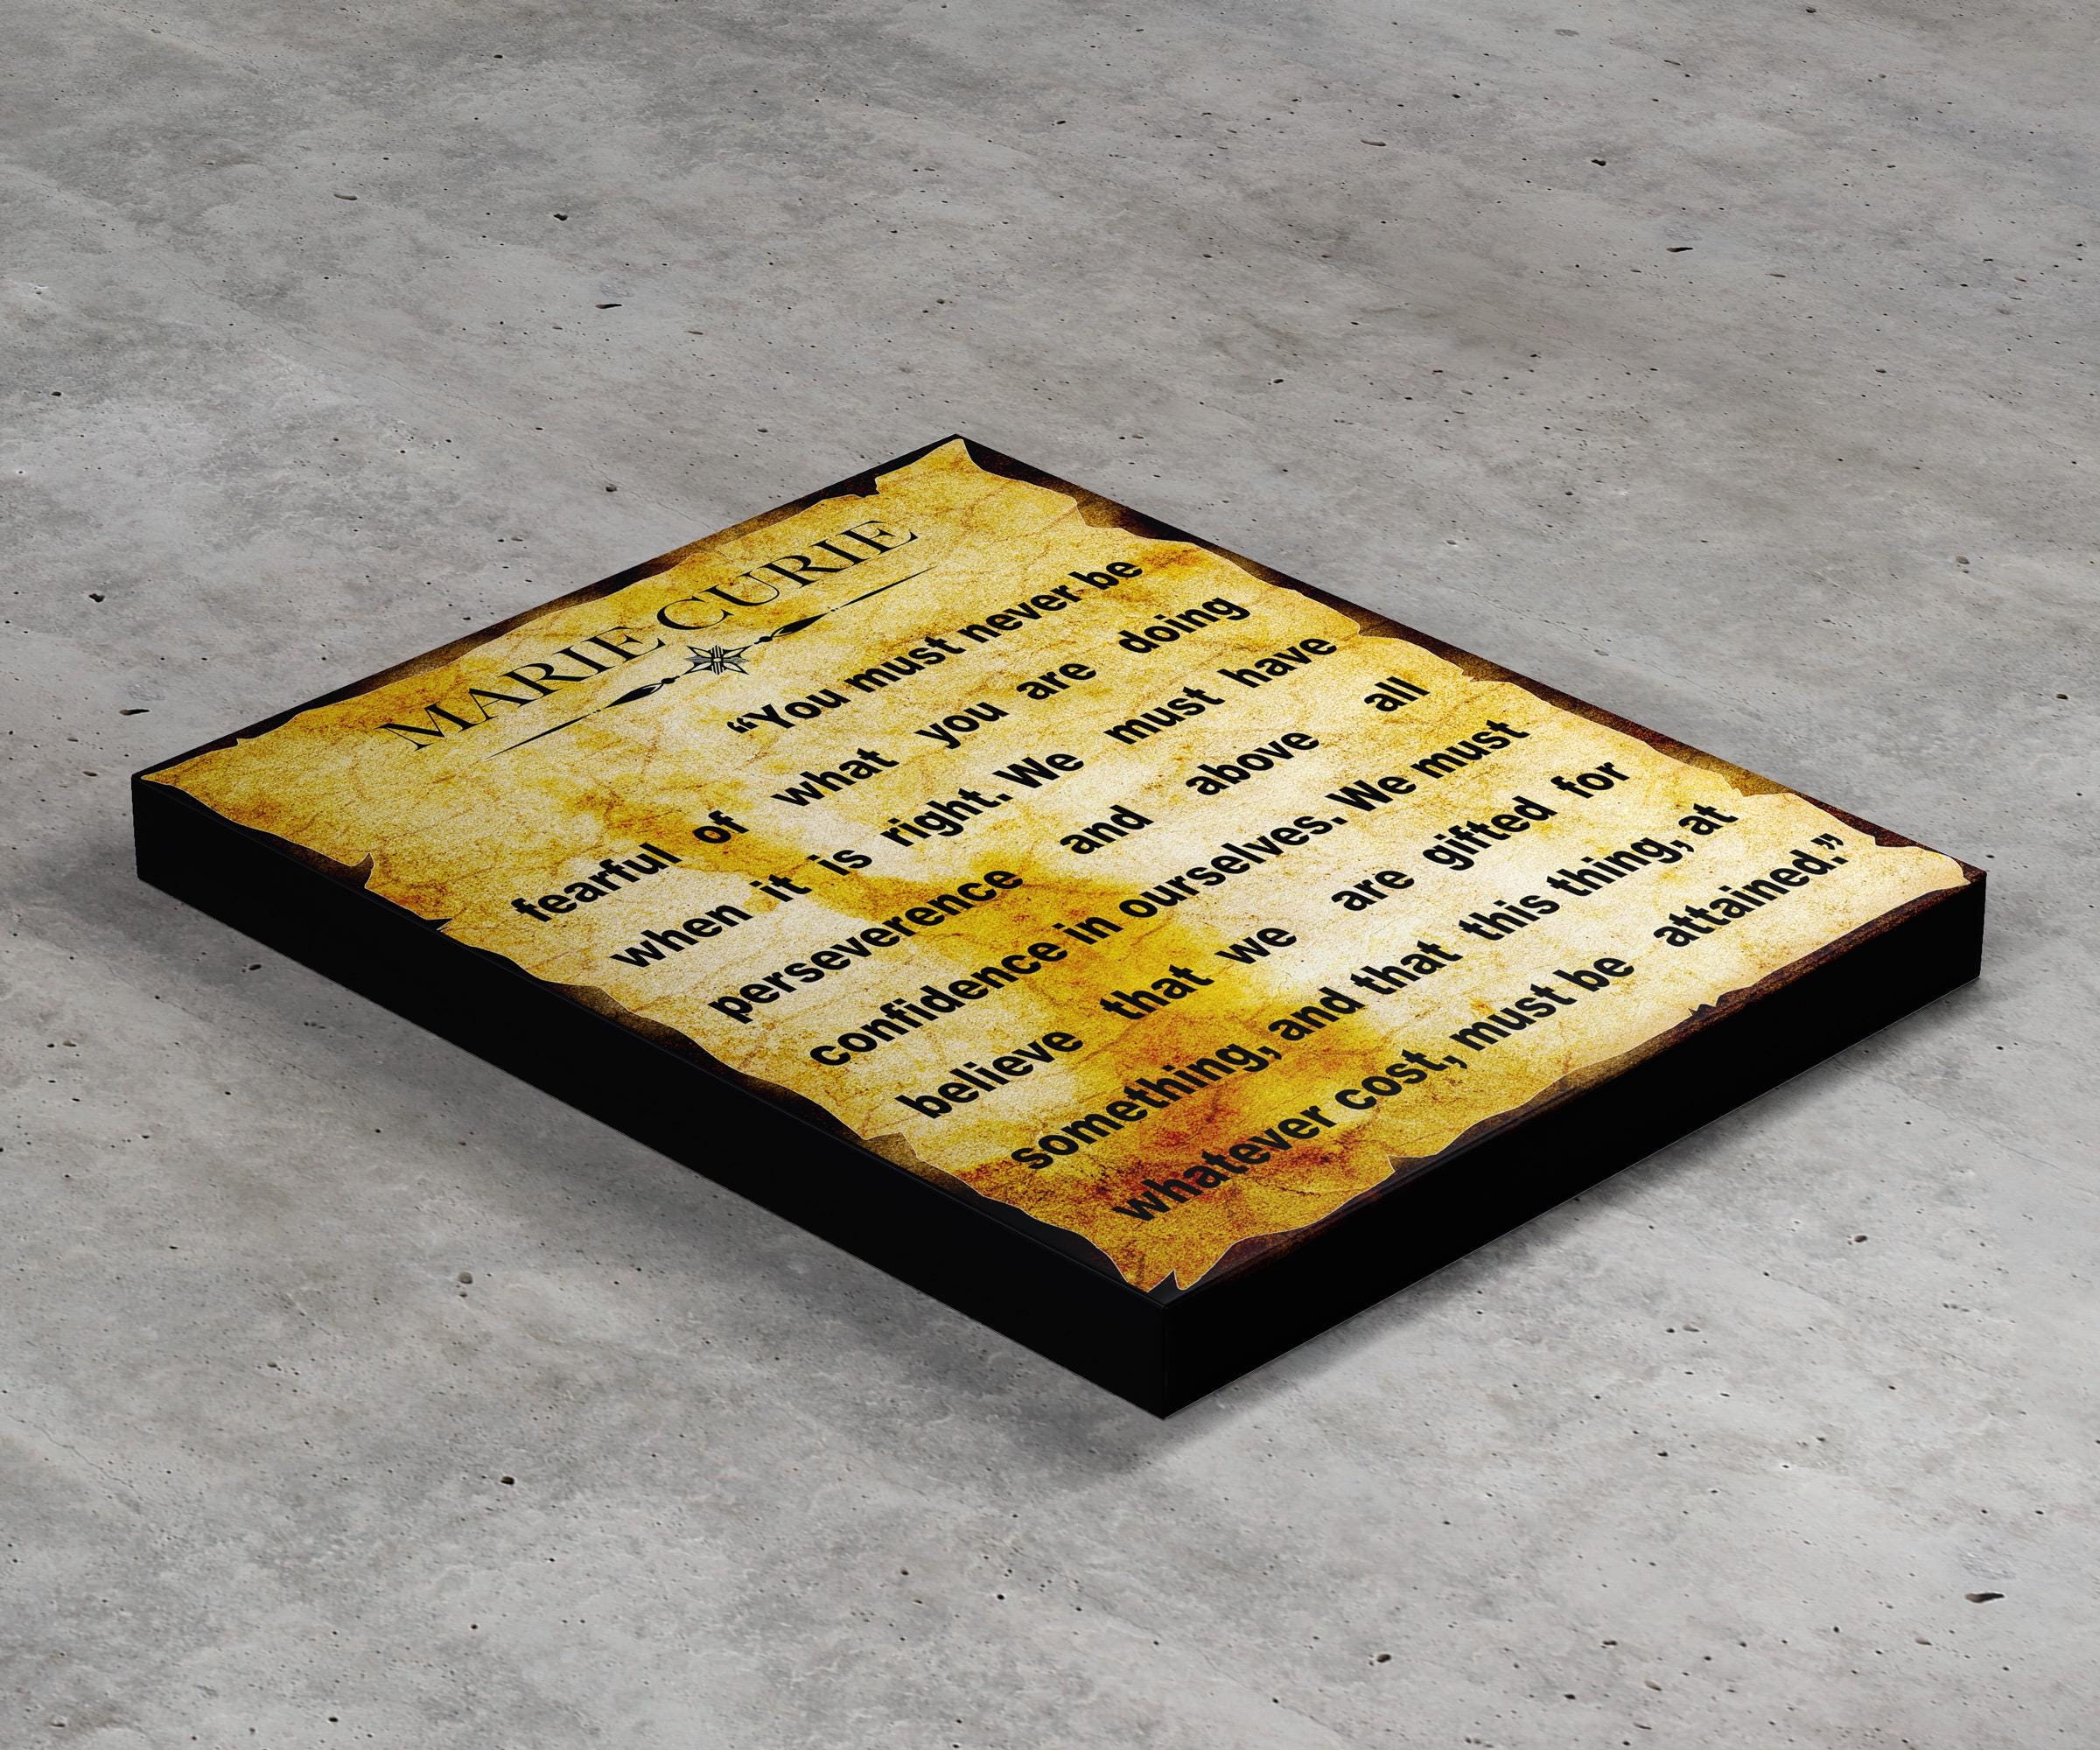 MARIE CURIE
“You must never be
fearful of what you are doing
when it is right. We must have
perseverence and above all
confidence in ourselves. We must
believe that we are gifted for
something, and that this thing, at
whatever cost, must be attained.”